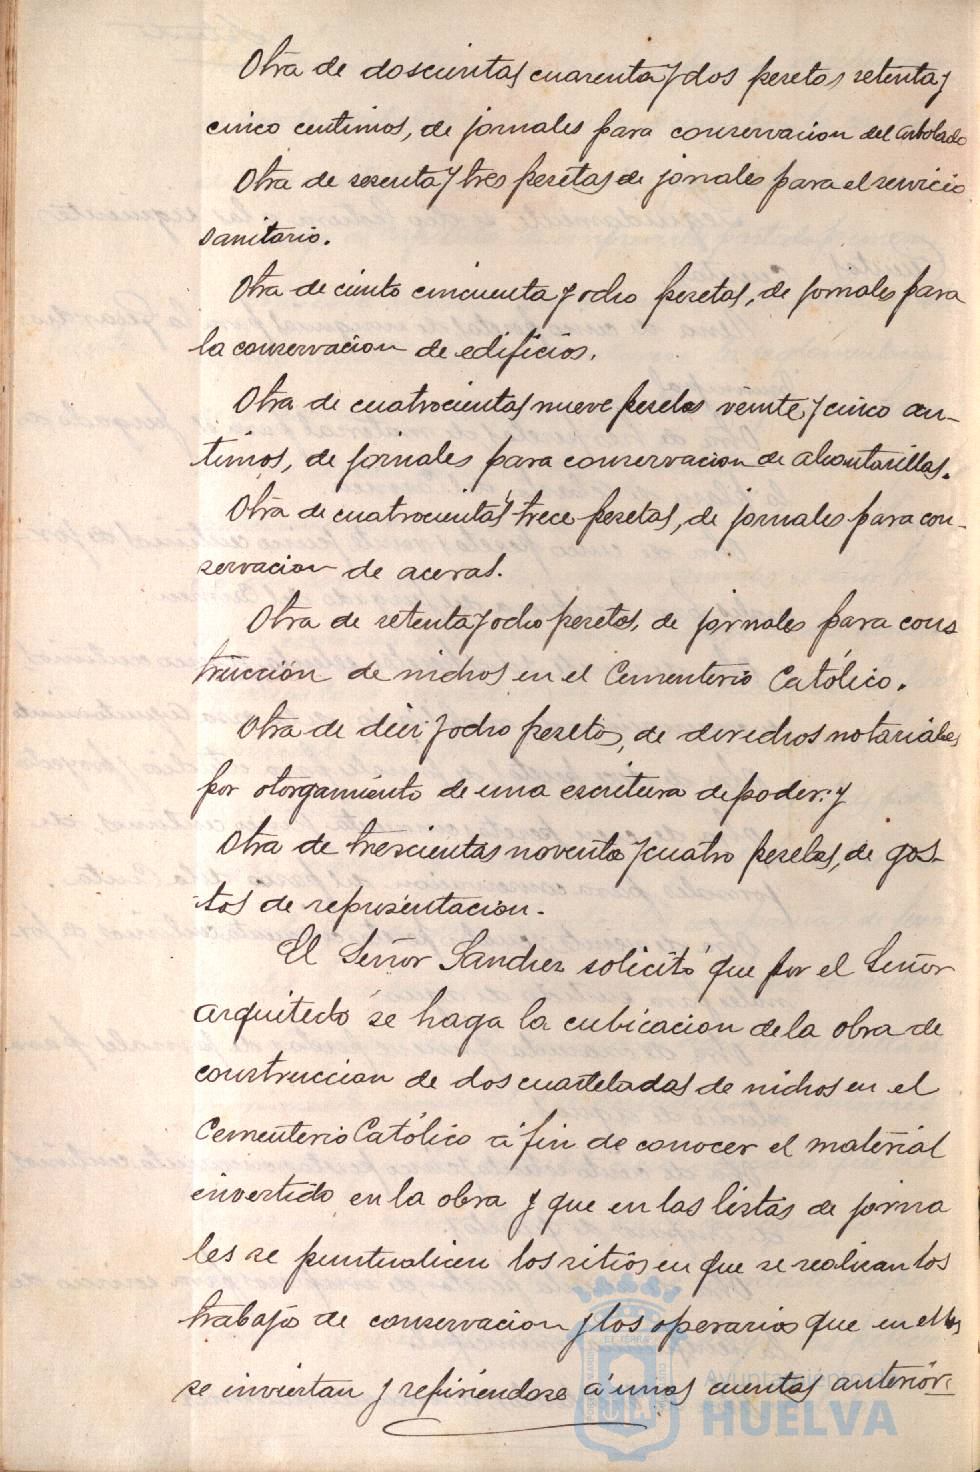 Otra de doscientas cuarenta y dos pesetas setenta y
cinco centimos, de jornales para conservacion del arbolado
Otra de sesenta y tres pesetas de jornales para el servicio
sanitario.
Otra de ciento cincuenta y ocho pesetas, de jornales para
la conservacion de edificios.
Otra de cuatrocientas nueve pesetas veinte y cinco cen-
timos, de jornales para conservacion de alcantarillas.
Otra de cuatrocientas y trece pesetas, de jornales para con-
servacion de aceras.
Otra de setenta y ocho pesetas, de jornales para cons
trucción de nichos en el Cementerio Católico.
Otra de diez y ocho pesetas, de derechos notariales
por otorgamiento de una escritura de poder: y
Otra de trescientas noventa y cuatro pesetas, de gas-
tos de representacion.
El Señor Sanchez solicitó que por el Señor
arquitecto se haga la cubicacion de la obra de
construccion de dos cuarteladas de nichos en el
Cementerio Católico á fin de conocer el material
invertido en la obra y que en las listas de jorna
les se puntualicen los sitios en que se realizan los
trabajo de conservacion y los operarios que en ellos
se inviertan y refiriendose á unas cuentas anterior-
Ayuntamiento de
HUELVA